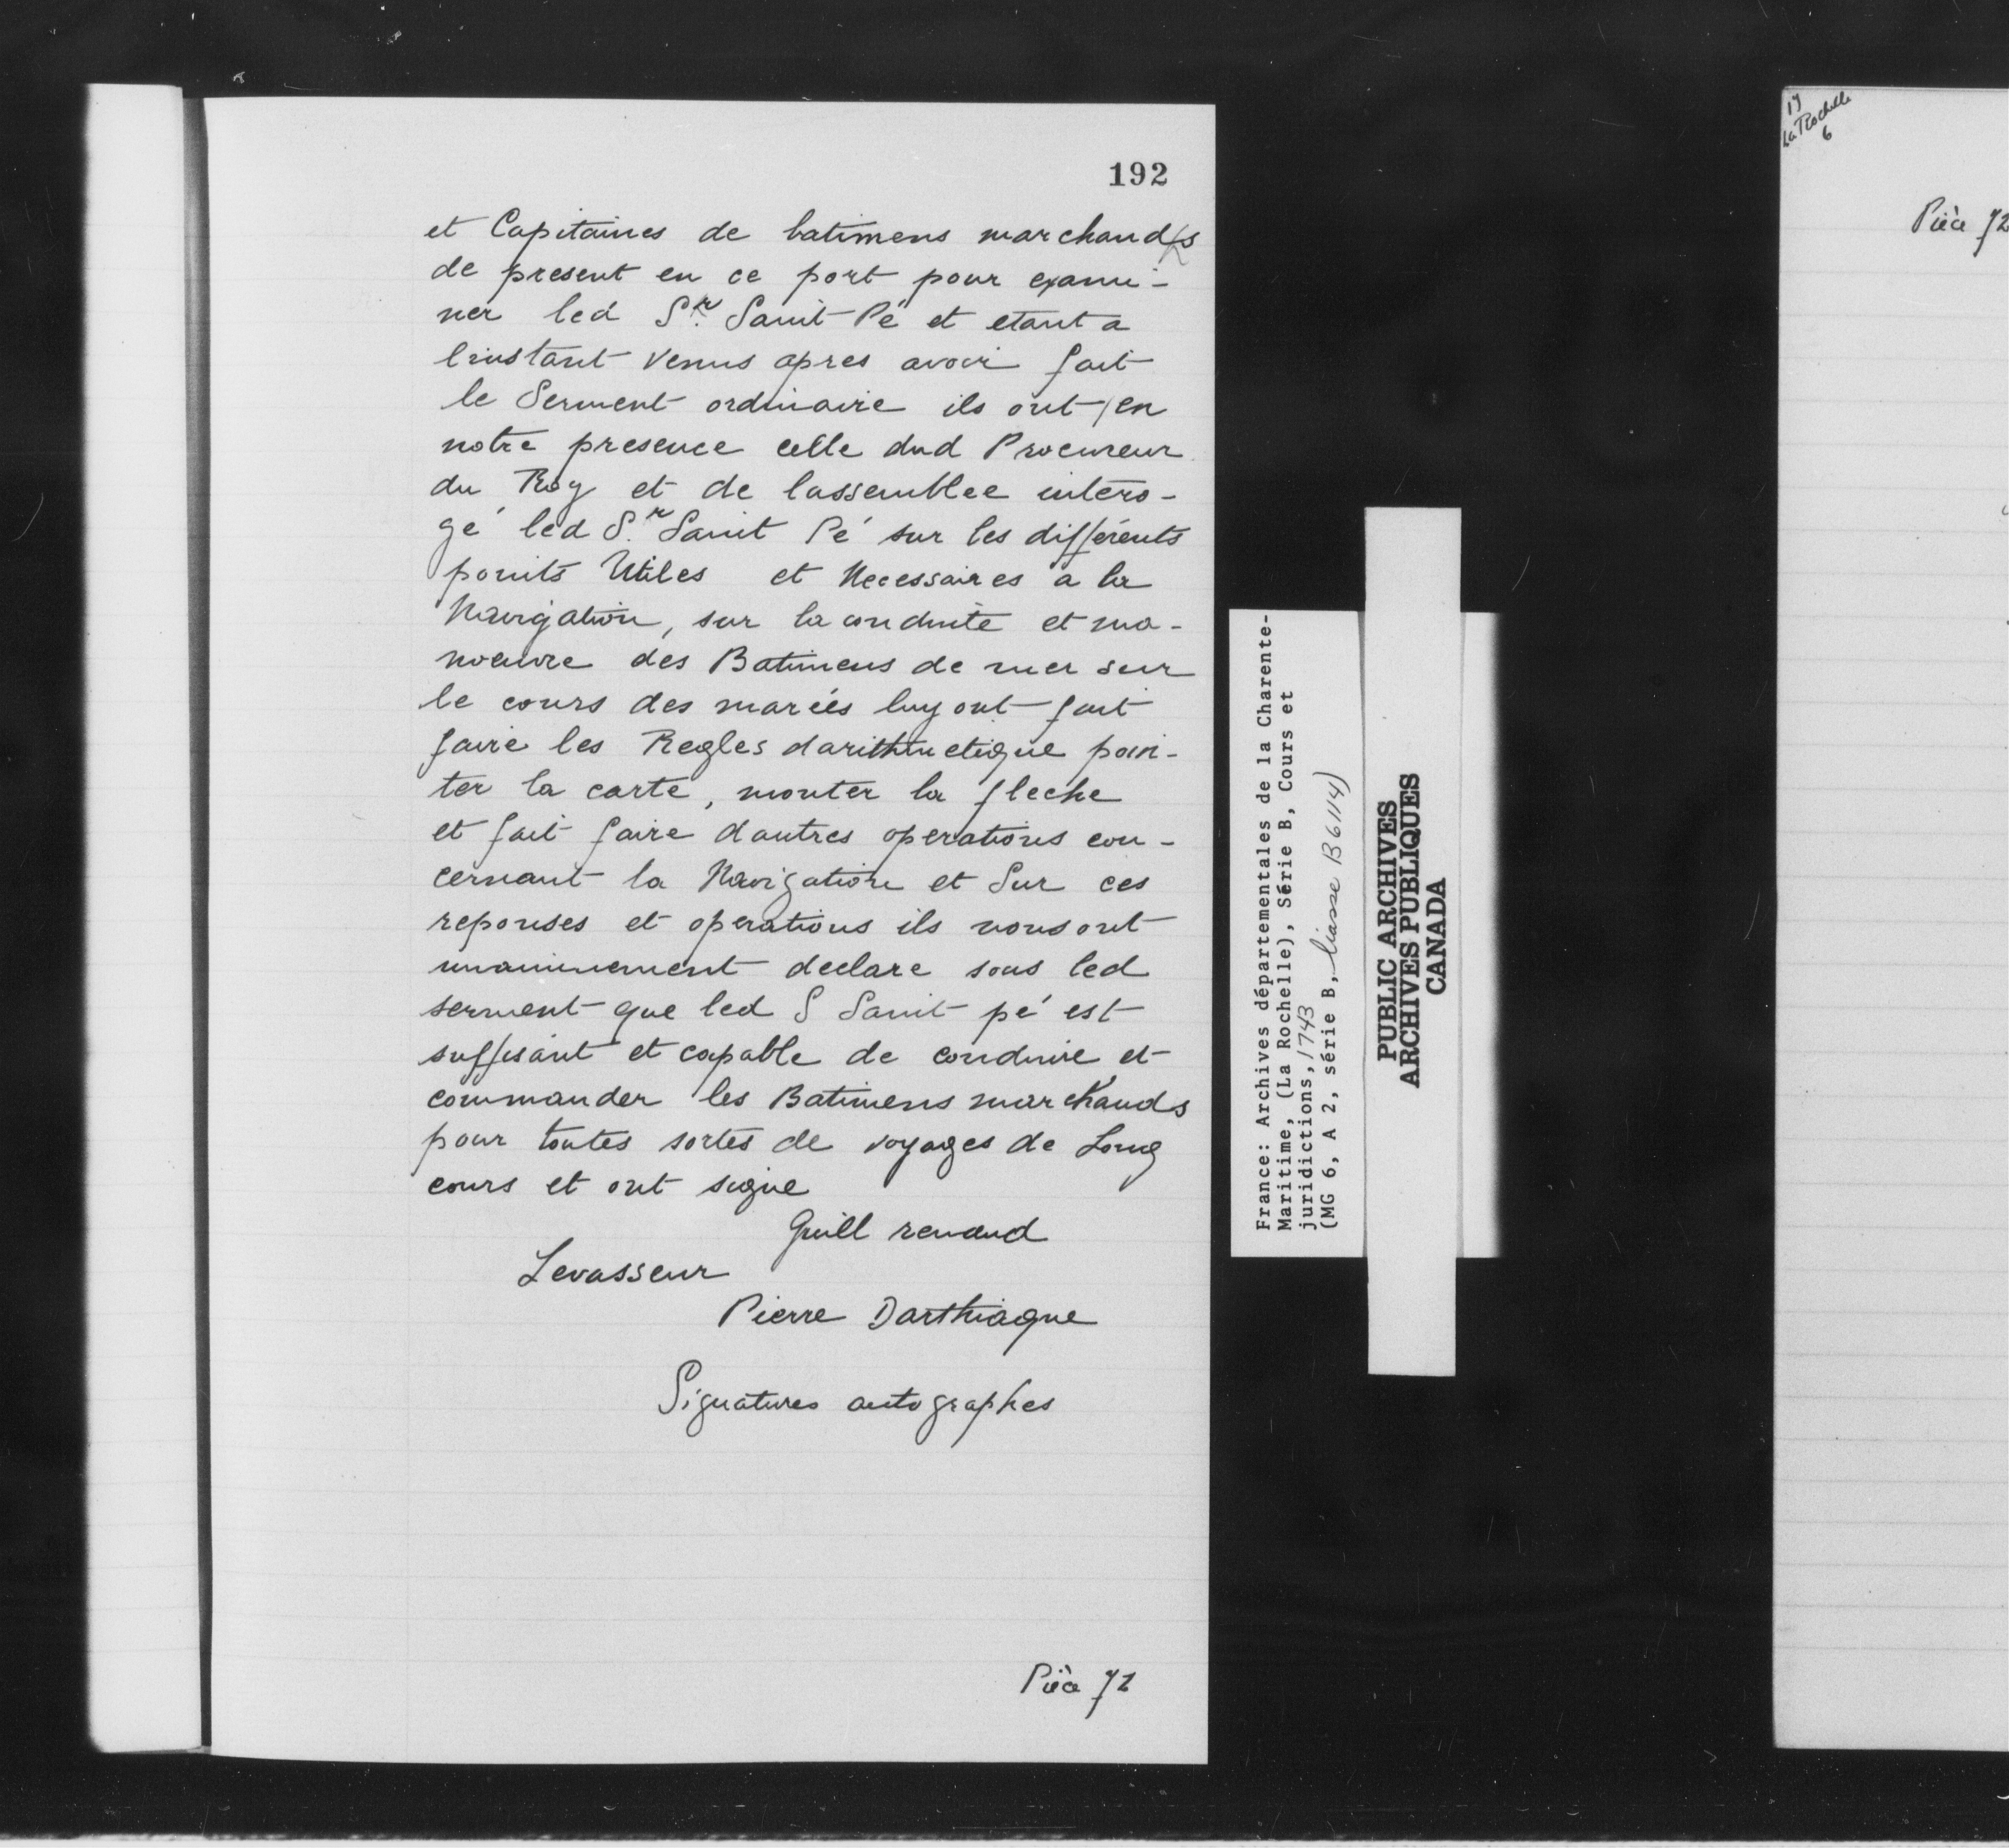 192
et Capitaines de batimens marchands
de present en ce port pour exami-
ner led S.r Saint-Pé et etant a
linstant venus apres avoir fait
le Serment ordinaire ils ont en
notre presence celle dud Procureur
du Roy et de lassemblee intero-
gé led S.r Saint Pé sur les différents
points Utiles et Necessaires a la
Navigation, sur la conduite et ma-
noeuvre des Batimens de mer sur
le cours des marées luy ont fait
faire les Regles darithmetique poin-
ter la carte, monter la fleche
et fait faire dautres operations con-
cernant la Navigation et Sur ces
reponses et operations ils nous ont
unanimement declare sous led
serment que led S Saint pé est
suffisant et capable de conduire et
commander les Batimens marchands
pour toutes sortes de voyages de Long
cours et ont signe
Guill renaud
Levasseur
Pierre Darthiague
Signatures autographes
Pièce 71
France: Archives départementales de la Charente-
Maritime, (La Rochelle), Série B, Cours et
juridictions, 1743
(MG 6, A 2, série B, liasse B6114)
PUBLIC ARCHIVES
ARCHIVES PUBLIQUES
CANADA
17
La Rochelle
6
Pièce 72